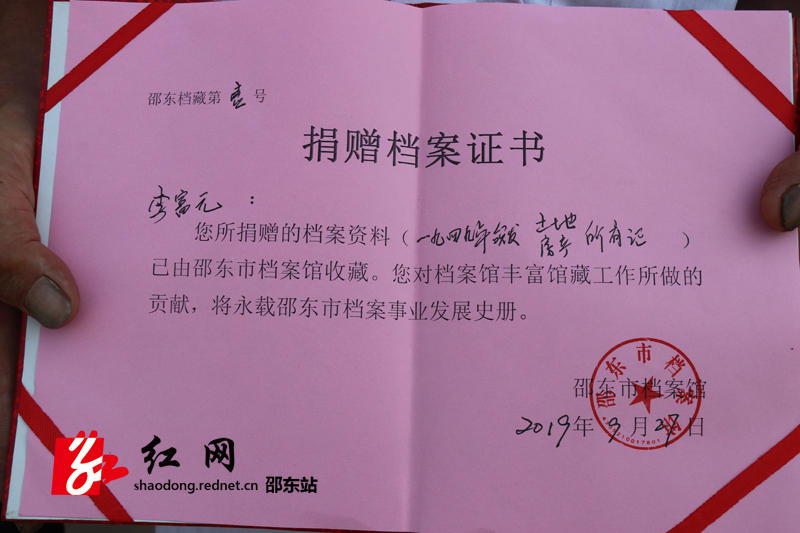 邵东档藏第壹号
捐赠档案证书
李富元：
您所捐赠的档案资料（一九四九年颁发 土地房产 所有记）
已由邵东市档案馆收藏。您对档案馆丰富馆藏工作所做的
贡献，将永载邵东市档案事业发展史册。
邵东市档案馆
2019年9月27日
邵东市档案馆
红网
shaodong.rednet.cn 邵东站